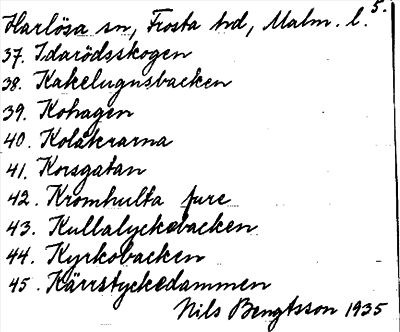 5.
Harlösa sn, Frosta hd, Malm. l.
37. Idarödsskogen
38. Kakelugnsbacken
39. Kohagen
40. Kolåkrarna
41. Korsgatan
42. Kromhulta fure
43. Kullalyckebacken
44. Kyrkobacken
45. Kärrstyckedammen
Nils Bengtsson 1935